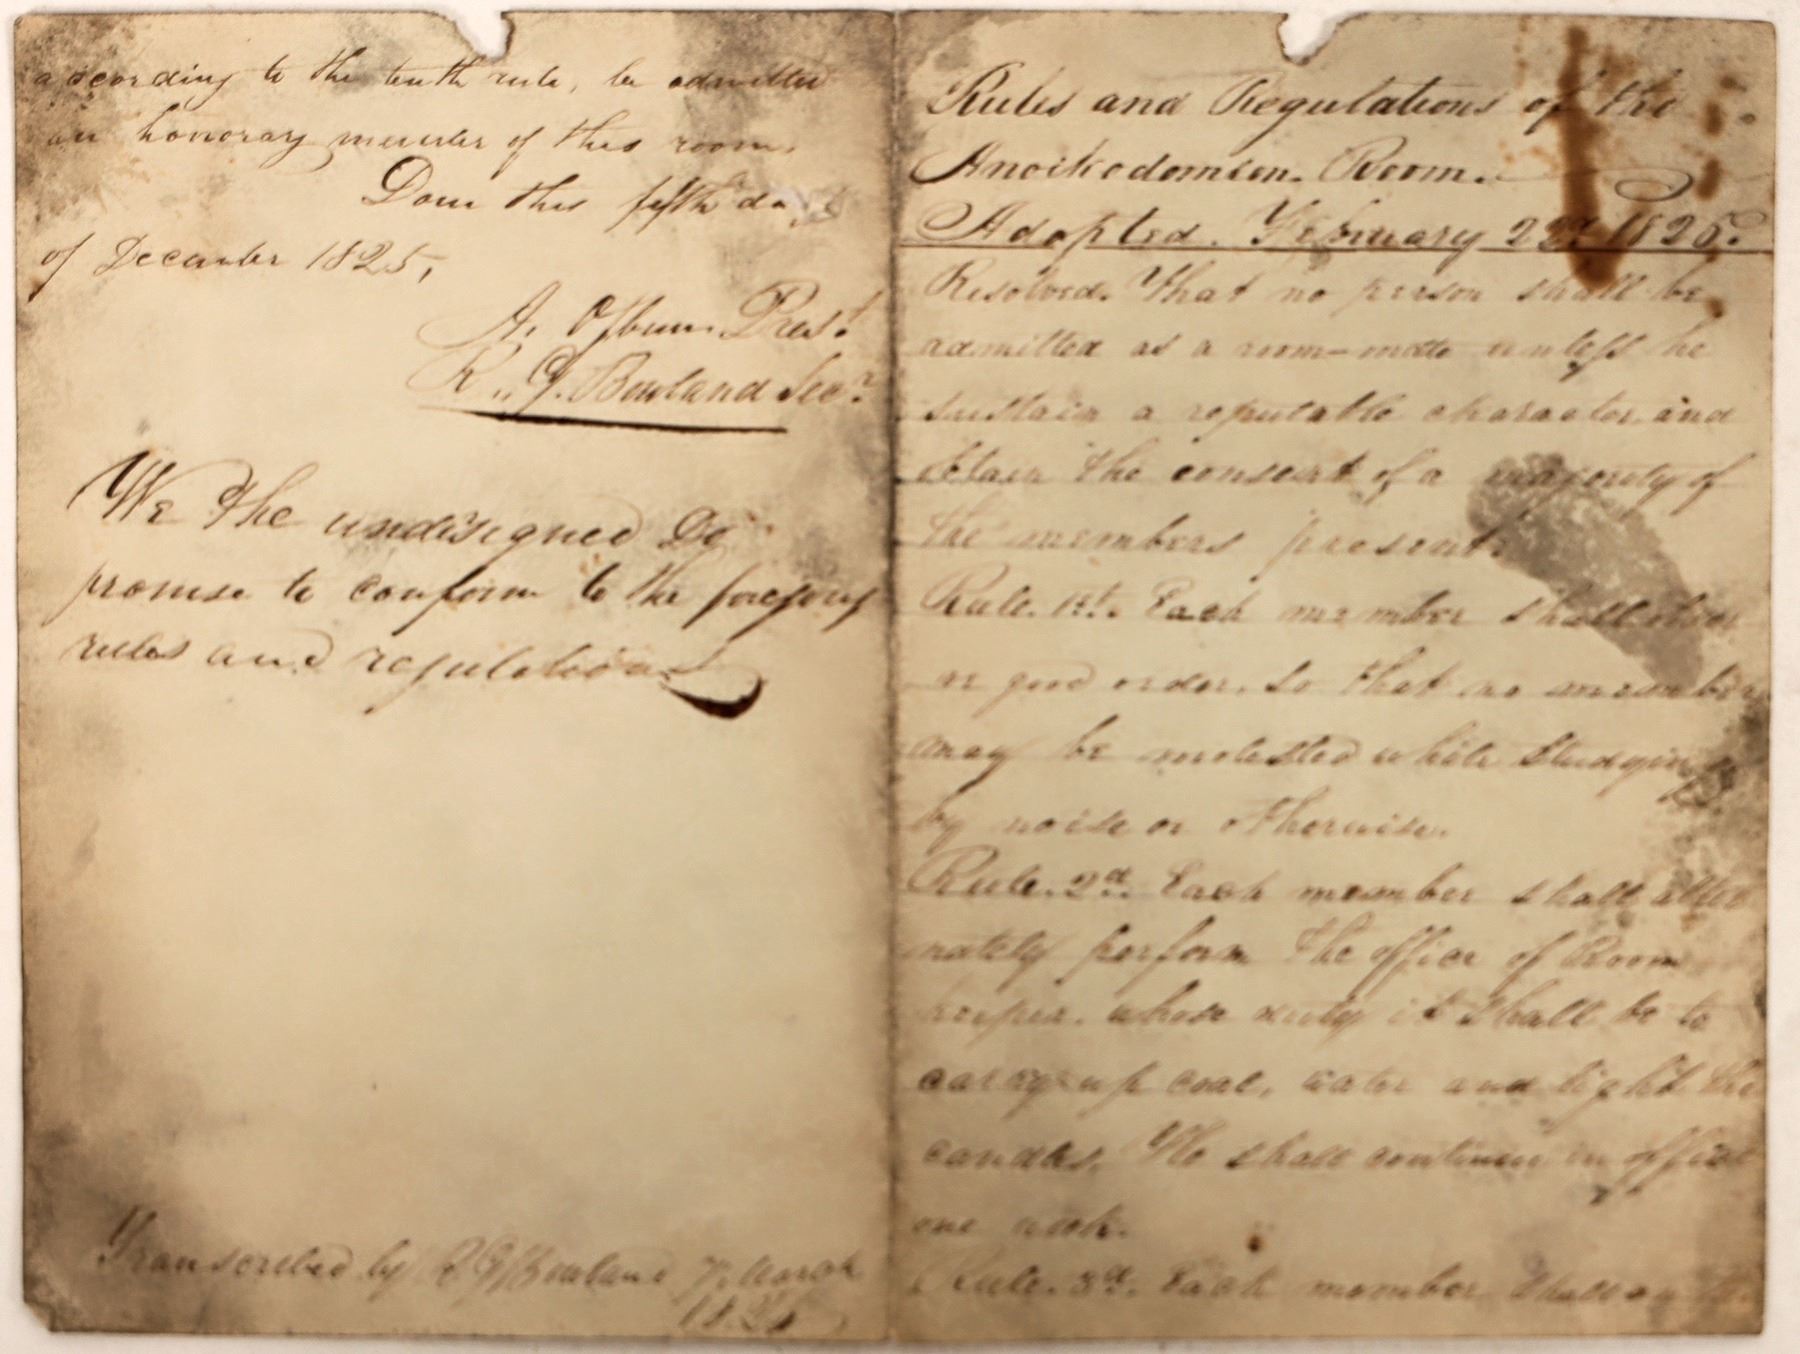 according to the tenth rule, be admitted
an honorary member of this room.
Done this fifth day
of December 1825,
A. Ogburn Prest.
R. G. Bowland Secr.
We the undisigned Do
promise to conform to the foregoing
rules and regulations
Transcribed by R G Bowland March
Rules and Regulations of the
Anoikodomeon. Room.
Adopted. February 22d. 1825.
Resolved. That no person shall be
admitted as a room-mate unless he
sustain a reputable character and
obtain the consent of a majority of
the members present.
Rule. 1st. Each member shall
good order. So that no member
may be molested while studying
by noise or otherwise.
Rule. 2d. Each member shall alter
nately perform the office of Room
keeper. whose duty it shall be to
carry up coal, water and light the
candles. He shall continue in office
one week.
Rule. 3d. Each member shall